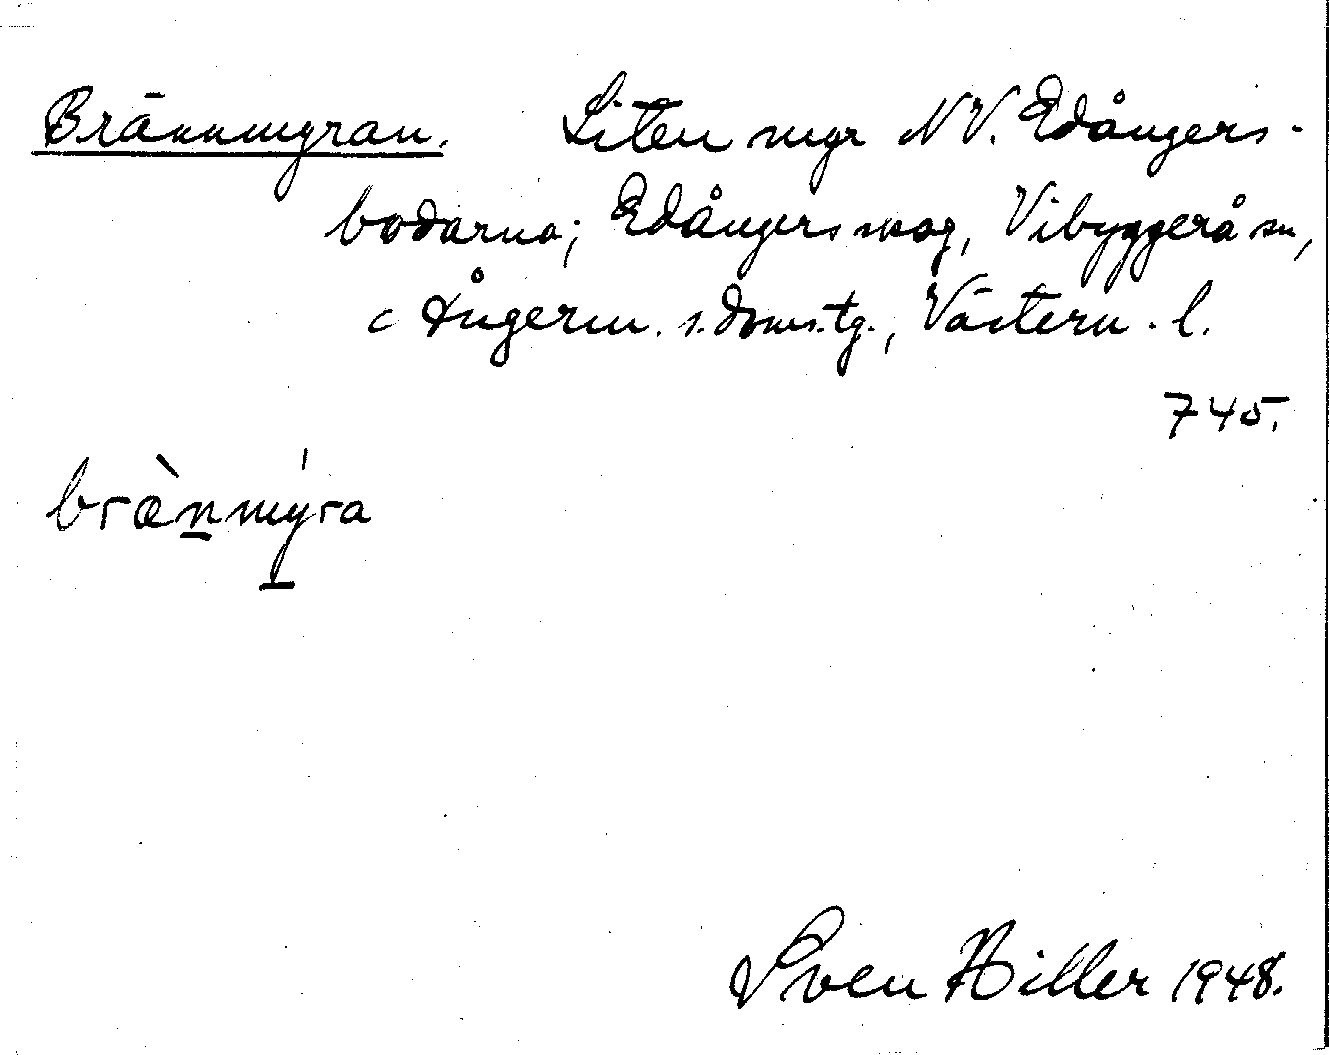 Brännmyran. Liten myr NV. Edångers-
bodarna; Edångers skog, Vibyggerå sn,
Ångerm. s. doms. tg., Västern. l.
745.
bræ̀n̲mý̲ra
Sven Hiller 1948.